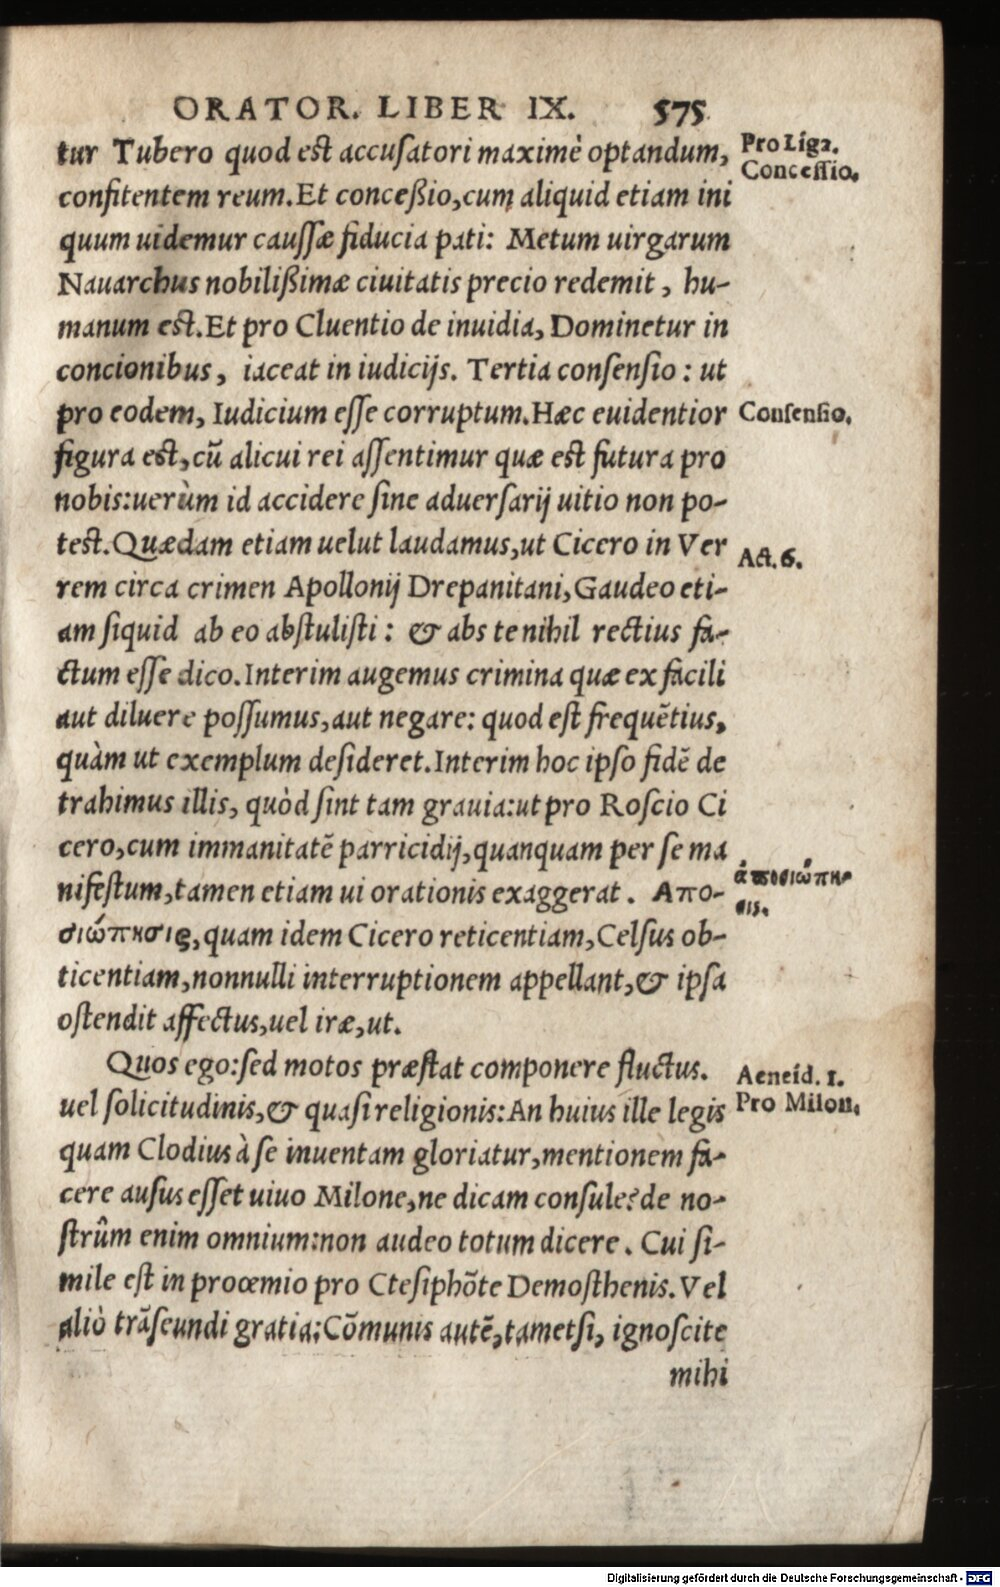 ORATOR. LIBER IX. 575
tur Tubero quod est accusatori maximè optandum,
Pro Liga.
Concessio.
confitentem reum. Et conceßio, cum aliquid etiam ini
quum uidemur caussæ fiducia pati: Metum uirgarum
Nauarchus nobilißimæ ciuitatis precio redemit, hu-
manum est. Et pro Cluentio de inuidia, Dominetur in
concionibus, iaceat in iudicijs. Tertia consensio: ut
pro eodem, Iudicium esse corruptum. Hæc euidentior
Consensio.
figura est, cũ alicui rei assentimur quæ est futura pro
nobis: uerùm id accidere sine aduersarij uitio non po-
test. Quædam etiam uelut laudamus, ut Cicero in Ver
Act. 6.
rem circa crimen Apollonij Drepanitani, Gaudeo eti-
am siquid ab eo abstulisti: & abs te nihil rectius fa-
ctum esse dico. Interim augemus crimina quæ ex facili
aut diluere possumus, aut negare: quod est frequẽtius,
quàm ut exemplum desideret. Interim hoc ipso fidẽ de
trahimus illis, quòd sint tam grauia: ut pro Roscio Ci
cero, cum immanitatẽ parricidij, quanquam per se ma
nifestum, tamen etiam ui orationis exaggerat. Απο-
ἀποσιώπη-
σις.
σιώπησις, quam idem Cicero reticentiam, Celsus ob-
ticentiam, nonnulli interruptionem appellant, & ipsa
ostendit affectus, uel iræ, ut.
Quos ego: sed motos præstat componere fluctus.
Aeneid. 1.
uel solicitudinis, & quasi religionis: An huius ille legis
Pro Milon.
quam Clodius à se inuentam gloriatur, mentionem fa-
cere ausus esset uiuo Milone, ne dicam consule? de no-
strûm enim omnium: non audeo totum dicere. Cui si-
mile est in proœmio pro Ctesiphõte Demosthenis. Vel
aliò trãseundi gratia: Cõmunis autẽ, tametsi, ignoscite
mihi
Digitalisierung gefördert durch die Deutsche Forschungsgemeinschaft - DFG